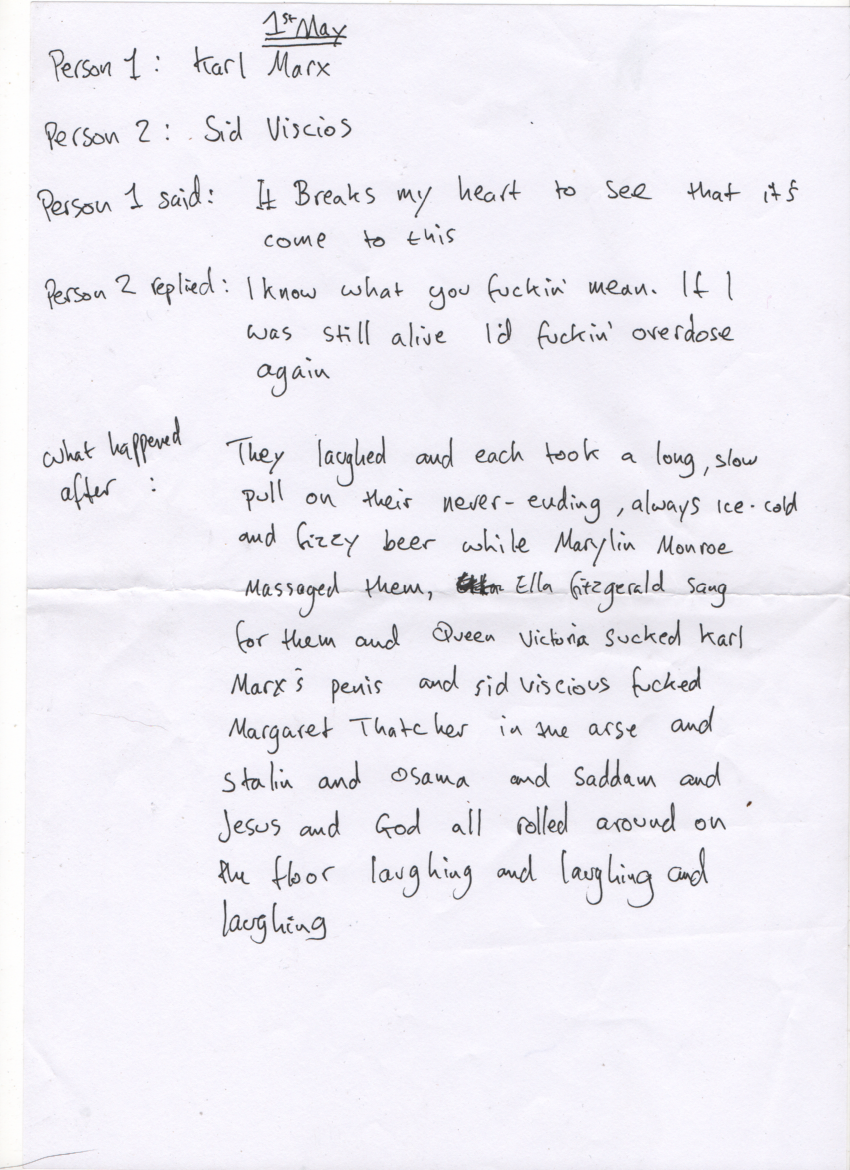 1st May
Person 1: Karl Marx
Person 2: Sid Viscios
Person 1 said: It Breaks my heart to see that it's
come to this
Person 2 replied: I know what you fuckin' mean. If I
was still alive I'd fuckin' overdose
again
what happened
after:
They laughed and each took a long, slow
pull on their never-ending, always ice-cold
and fizzy beer while Marylin Monroe
Massaged them, Ella fitzgerald sang
for them and Queen Victoria sucked Karl
Marx's penis and sid viscious fucked
Margaret Thatcher in the arse and
Stalin and Osama and Saddam and
Jesus and God all rolled around on
the floor laughing and laughing and
laughing